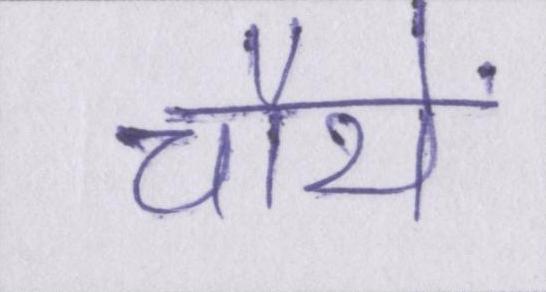 चौथें